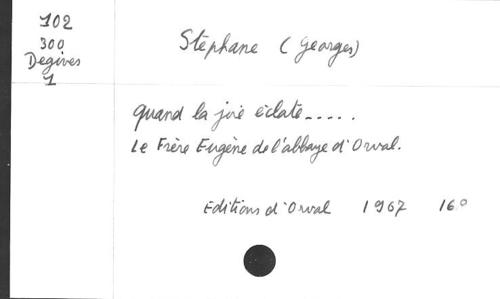 102
300
Degives
1
Stéphane (Georges)
quand la joie éclate.....
Le Frère Eugène de l'abbaye d'Orval.
Editions d'Orval 1967 16°